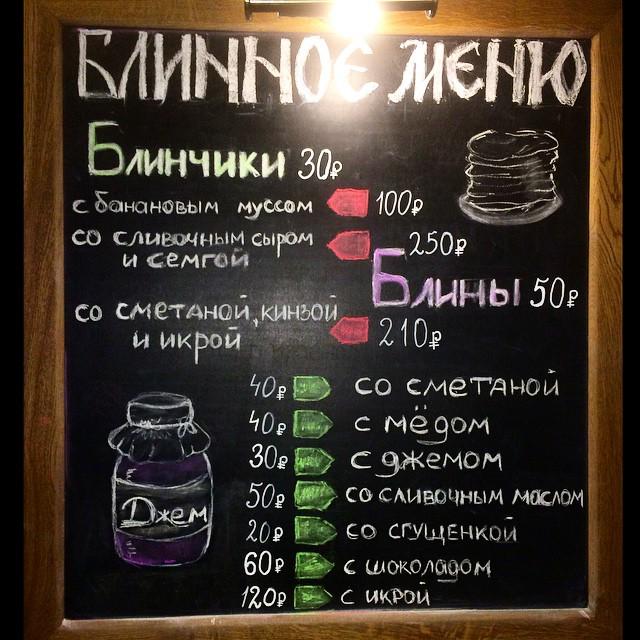 БЛИННОЕ МЕНЮ
Блинчики 30₽
с банановым муссом 100₽
со сливочным сыром 250₽
и семгой
Блины 50₽
со сметаной, кинзой
и икрой 210₽
40₽ со сметаной
40₽ с мёдом
30₽ с джемом
50₽ со сливочным маслом
20₽ со сгущенкой
60₽ с шоколадом
120₽ с икрой
Джем